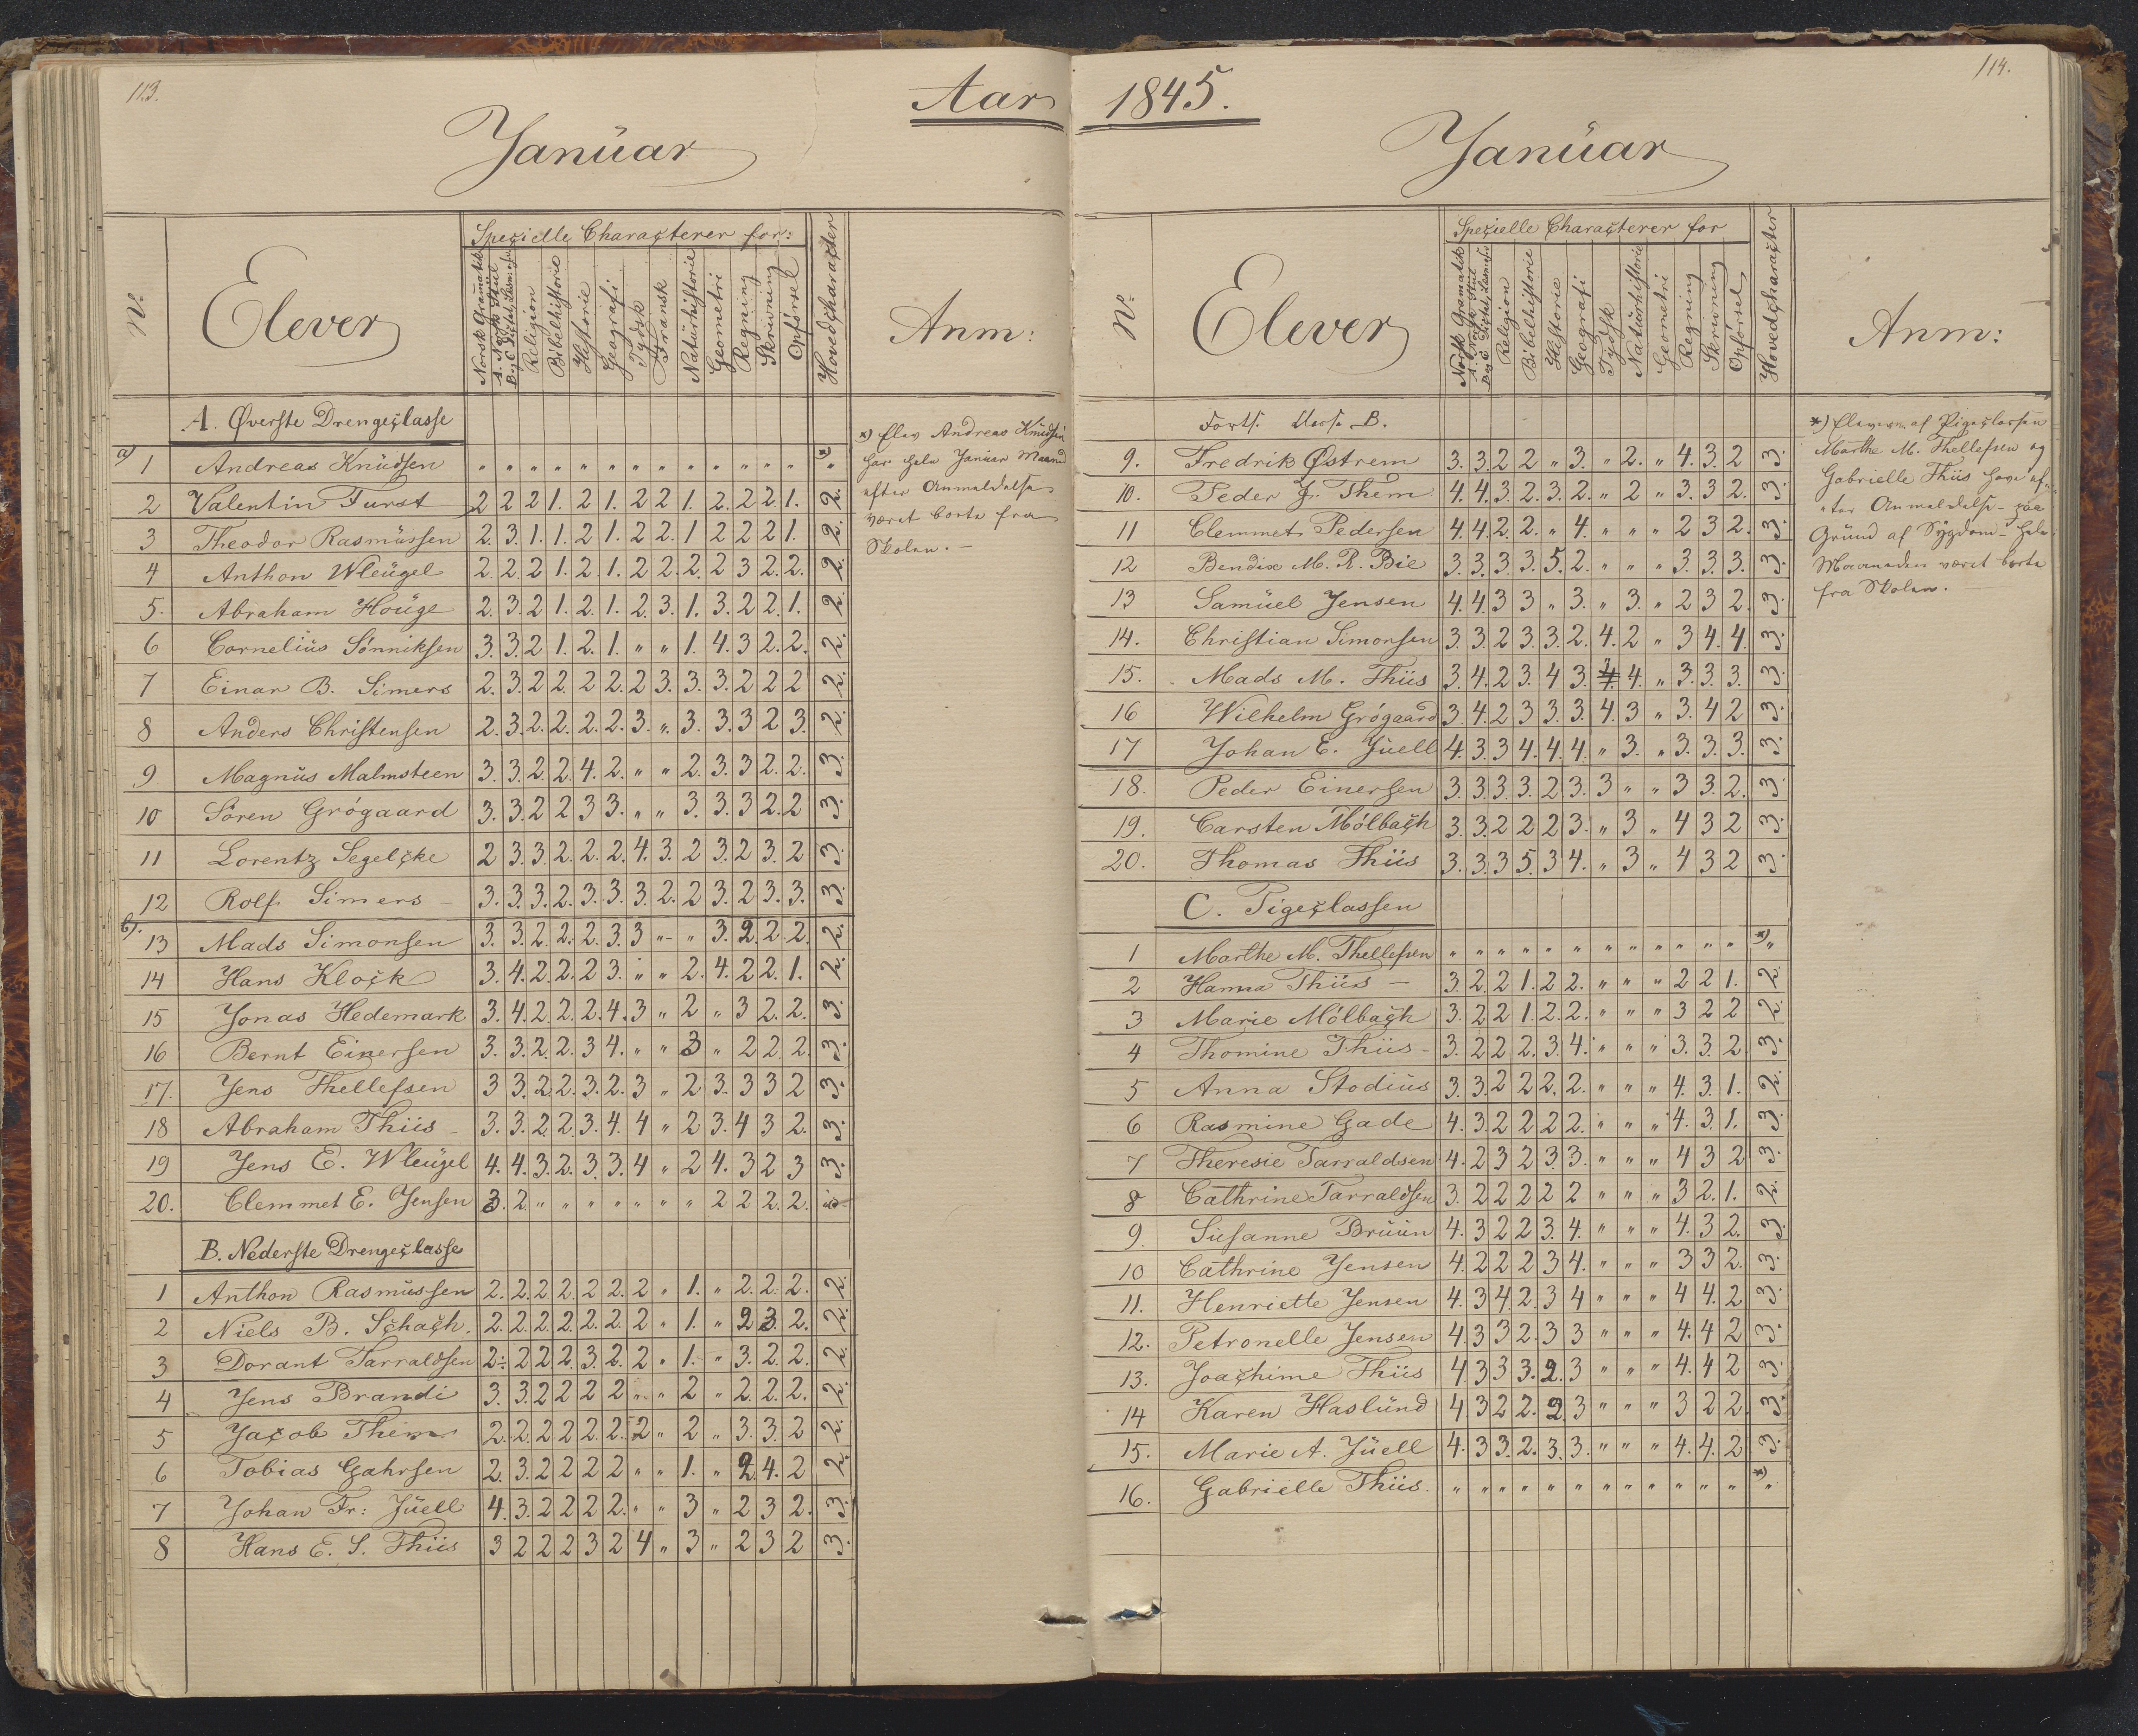 113.
Aar
Januar
Specielle Characterer for:
No.
Elever
Norsk Gramatik
A. Norsk Stiil
B og C Dictat, Læsn.
Religion
Bibelhistorie
Historie
Geografi
Tydsk
Fransk
Naturhistorie
Geometri
Regning
Skrivning
Opførsel
Hovedcharacter
Anm:
A. Øverste Drengeclasse
a) 1 Andreas Knudsen " " " " " " " " " " " " " *) "
2 Valentin Furst 2 2 2 1. 2 1. 2 2 1. 2. 2 2 1. 2.
3 Theodor Rasmussen 2. 3. 1. 1. 2 1. 2 2. 1 2 2 2 1. 2.
4 Anthon Wleugel 2. 2. 2 1. 2. 1. 2 2. 2. 2 3 2. 2. 2.
5. Abraham Houge 2. 3. 2 1. 2. 1. 2 3. 1. 3. 2 2 1. 2.
6 Cornelius Sønniksen 3. 3. 2 1. 2. 1. " " 1. 4. 3 2. 2. 2.
7 Einar B. Simers 2. 3. 2 2. 2 2. 2 3. 3. 3. 2 2 2 2.
8 Anders Christensen 2. 3. 2. 2. 2. 2. 3. " 3. 3. 3 2 3. 2.
9 Magnus Malmsteen 3. 3. 2. 2. 4. 2. " " 2. 3. 3 2. 2. 3.
10 Sören Grögaard 3. 3. 2 2 3 3. " " 3. 3. 3 2. 2 3.
11 Lorentz Segelcke 2 3. 3. 2. 2. 2. 4. 3. 2 3. 2 3. 2 3.
12 Rolf. Simers – 3. 3. 3 2. 3. 3. 3. 2. 2 3. 2 3. 3. 3.
b). 13 Mads Simonsen 3. 3. 2. 2. 2. 3. 3 " " 3. 2. 2. 2. 2.
14 Hans Klock 3. 4. 2. 2. 2 3. " " 2. 4. 2 2. 1. 2.
15 Jonas Hedemark 3. 4. 2. 2. 2. 4. 3 " 2 " 3 2. 2. 3.
16 Bernt Einersen 3. 3. 2. 2. 3 4. " " 3 " 2 2. 2. 3.
17. Jens Thellefsen 3 3. 2. 2. 3. 2. 3 " 2 3. 3 3 2 3.
18 Abraham Thiis – 3. 3. 2. 2. 3. 4. 4 " 2 3. 4 3 2. 3.
19 Jens E. Wleugel 4. 4. 3. 2. 3. 3. 4 " 2 4. 3 2 3 3.
20. Clemmet E. Jensen 3. 2. " " " " " " " 2 2 2. 2. 3
B. Nederste Drengeclasse
1 Anthon Rasmussen 2. 2. 2. 2. 2 2. 2 " 1. " 2. 2. 2. 2.
2 Niels B. Schach. 2. 2. 2. 2. 2. 2. 2 " 1. " 2 3. 2. 2.
3 Dorant Tarraldsen 2 2 2 2. 3. 2. 2 " 1. " 3. 2. 2. 2.
4 Jens Brandi 3. 3. 2 2 2 2 " " 2 " 2. 2. 2. 2.
5 Jacob Them 2. 2. 2 2 2. 2. 2 " 2 " 3. 3. 2 2.
6 Tobias Gahrsen 2. 3. 2 2 2 2 " " 1. " 2. 4. 2 2.
7 Johan Fr: Juell 4. 3. 2 2 2 2. " " 3 " 2 3 2. 3.
8 Hans E. S. Thiis 3 2 2 2 3 2 4 " 3 " 2 3 2 3.
*) Elev Andreas Knudsen
har hele Januar Maaned
efter Anmeldelse
været borte fra
Skolen. –
1845.
114.
Januar
Specielle Characterer for
No.
Elever
Norsk Gramatik
A. Norsk Stiil
B og C Dictat, Læsn.
Religion
Bibelhistorie
Historie
Geografi
Tydsk
Naturhistorie
Geometri
Regning
Skrivning
Opførsel
Hovedcharacter
Anm:
Forts. Classe B.
9. Fredrik Østrem 3. 3. 2 2 " 3. " 2. " 4. 3. 2 3.
10. Peder J. Them 4. 4. 3. 2. 3. 2. " 2 " 3. 3 2. 3.
11 Clemmet Pedersen 4. 4. 2. 2. " 4. " " " 2 3 2. 3.
12 Bendix M. R. Bie 3. 3. 3. 3. 5. 2. " " " 3. 3. 3. 3.
13 Samuel Jensen 4. 4. 3 3 " 3. " 3. " 2 3 2. 3.
14. Christian Simonsen 3. 3. 2 3. 3. 2. 4. 2 " 3 4. 4. 3.
15. Mads M. Thiis 3. 4. 2 3. 4 3. 4. 4. " 3. 3. 3. 3.
16 Wilhelm Grögaard 3. 4. 2 3 3. 3. 4. 3 " 3. 4 2 3.
17 Johan E. Juell 4. 3. 3 4. 4. 4. " 3. " 3. 3. 3. 3.
18. Peder Einersen 3. 3. 3. 3. 2. 3. 3 " " 3 3. 2. 3.
19. Carsten Mölbach 3. 3. 2 2 2 3. " 3 " 4 3 2 3.
20. Thomas Thiis 3. 3. 3 5. 3 4. " 3 " 4 3 2 3.
C. Pigeclassen
1 Marthe M. Thellefsen " " " " " " " " " " " " *) "
2 Hanna Thiis – 3. 2. 2 1. 2 2. " " " 2 2 1. 2.
3 Marie Mölbach 3. 2 2 1. 2. 2. " " " 3 2 2 2.
4 Thomine Thiis – 3. 2 2 2. 3. 4. " " " 3. 3. 2. 3.
5 Anna Stodius 3. 3. 2 2 2. 2. " " " 4. 3. 1. 2.
6 Rasmine Gade 4. 3. 2 2 2 2. " " " 4. 3. 1. 3.
7 Theresie Tarraldsen 4. 2 3 2 3. 3. " " " 4 3 2 3.
8 Cathrine Tarraldsen 3. 2 2 2 2 2 " " " 3 2. 1. 2.
9. Susanne Bruun 4. 3 2 2 3. 4. " " " 4. 3 2. 3.
10 Cathrine Jensen 4. 2 2 2 3 4. " " " 3 3 2. 3.
11. Henriette Jensen 4. 3 4. 2. 3 4 " " " 4 4. 2 3.
12. Petronelle Jensen 4. 3 3 2. 3 3 " " " 4. 4 2 3.
13. Joachime Thiis 4 3 3 3. 2. 3 " " " 4. 4 2 3.
14 Karen Haslund 4 3 2 2. 2. 3 " " " 3 2 2. 3.
15. Marie A. Juell 4. 3 3. 2. 3. 3. " " " 4. 4. 2 3.
16. Gabrielle Thiis. " " " " " " " " " " " " *) "
*) Eleverne af Pigeclassen
Marthe M. Thellefsen og
Gabrielle Thiis have ef-
ter Anmeldelse – paa
Grund af Sygdom – hele
Maaneden været borte
fra Skolen.